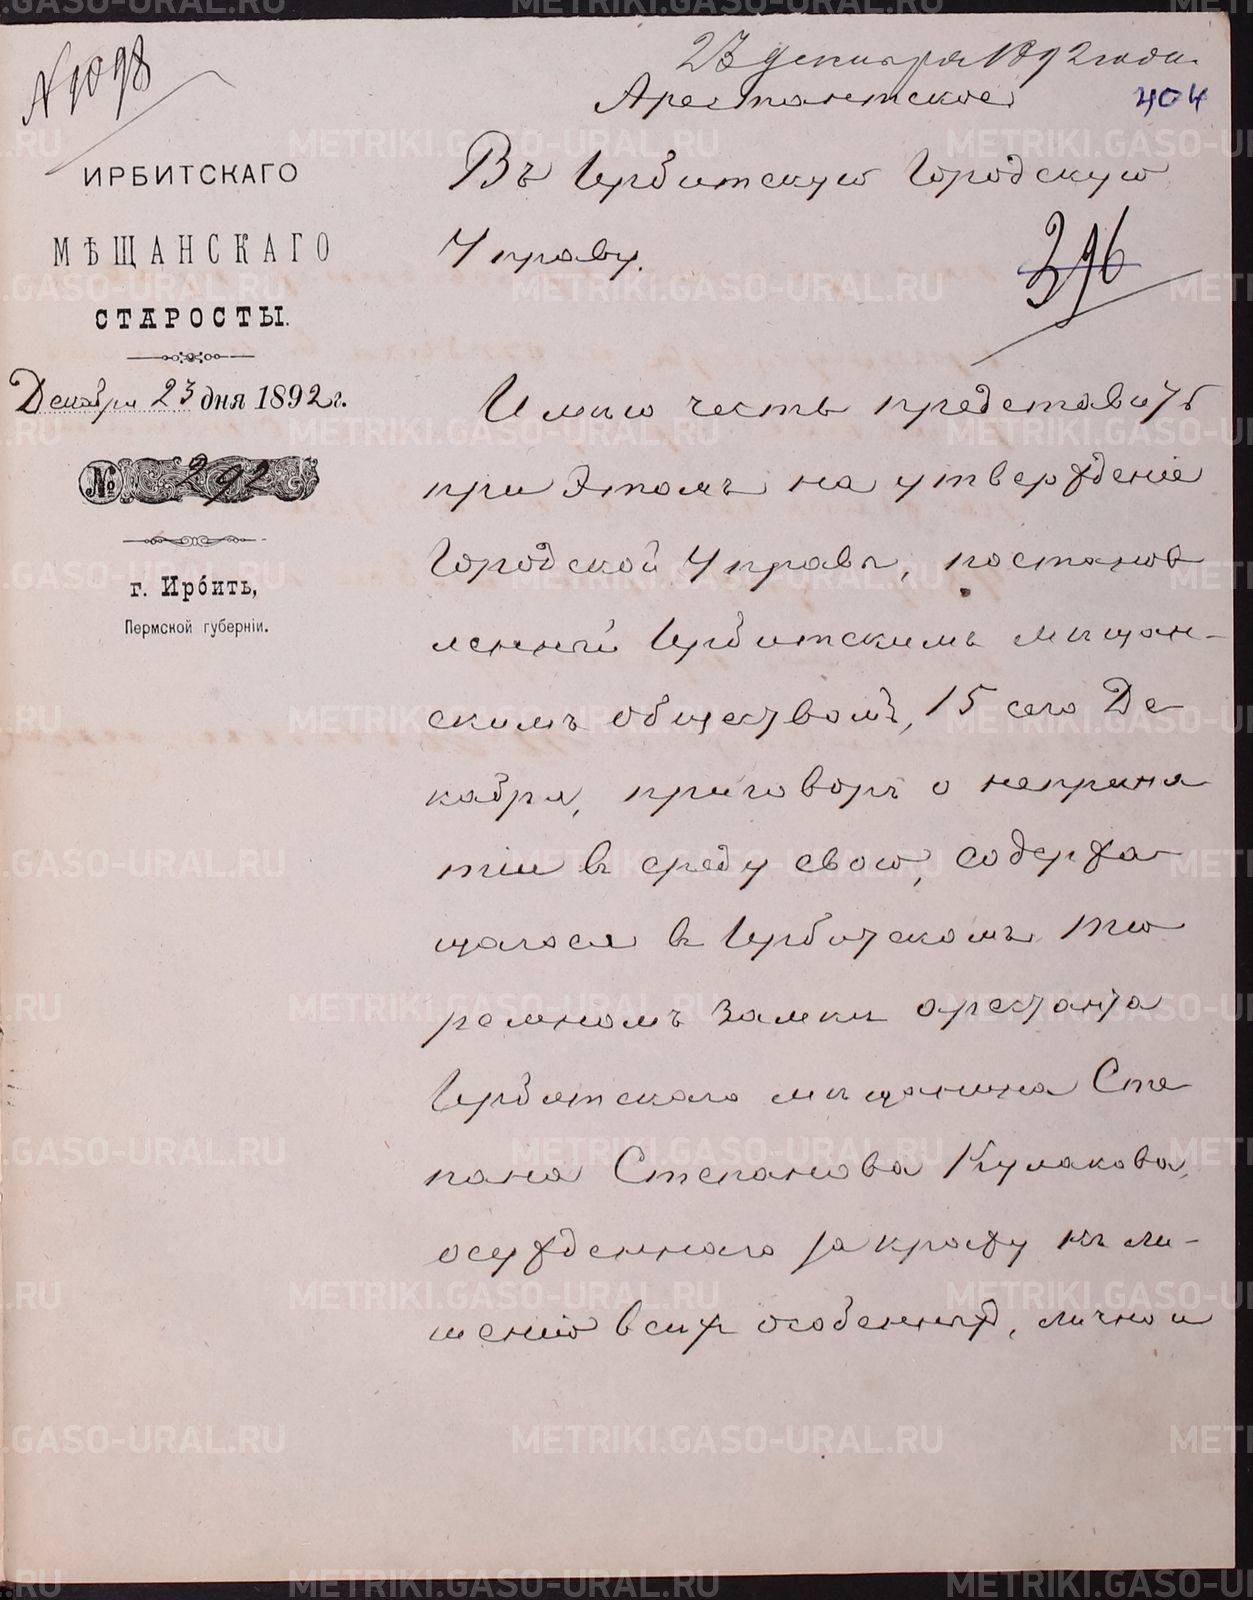 № 1098
23 декабря 1892 года.
Арестантское
404
ИРБИТСКАГО
МѢЩАНСКАГО
СТАРОСТЫ.
Декабря 23 дня 1892 г.
№ 292
г. Ирбить,
Пермской губерніи.
396
Въ Ирбитскую Городскую
Управу.
Имѣю честь представить
при этомъ на утвержденіе
Городской Управы, постанов
ленный Ирбитскимъ мѣщан-
скимъ обществомъ, 15 сего Де
кабря, приговоръ о неприня
тіи въ среду свою, содержа
щагося въ Ирбитскомъ тю
ремномъ замкѣ арестанта
Ирбитскаго мѣщанина Сте
пана Степанова Кулакова,
осужденнаго за кражу къ ли-
шенію всѣхъ особенныхъ, лично и
METRIKI.GASO-URAL.RU